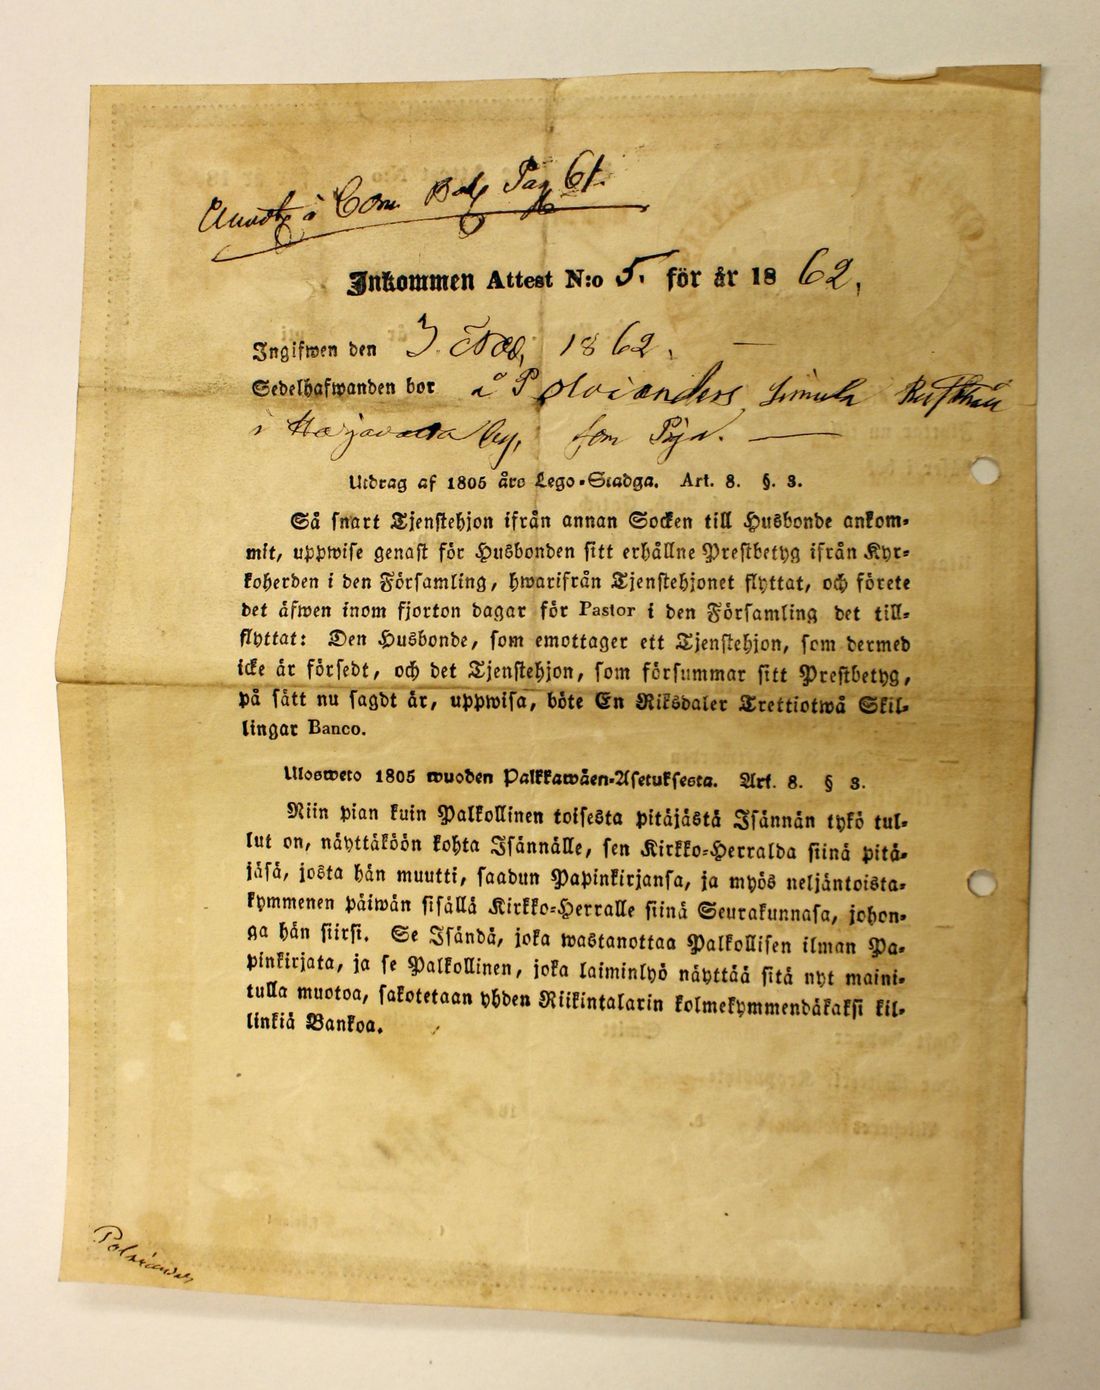 i Com. Bok Pag 61.
Inkommen Attest N:o 5. för år 18 62.
Ingifwen den 3 1862.
Sedelhafwanden bor å Polvianders
i Harjavalta by, som Piga.
Utdrag af 1805 års Lego-Stadga. Art. 8. §. 3.
Så snart Tjenstehjon ifrån annan Socken till Husbonde ankom-
mit, uppwise genast för Husbonden sitt erhållne Prestbetyg ifrån Kyr-
koherden i den Församling, hwarifrån Tjenstehjonet flyttat, och förete
det äfwen inom fjorton dagar för Pastor i den Församling det till-
flyttat: Den Husbonde, som emottager ett Tjenstehjon, som dermed
icke är försedt, och det Tjenstehjon, som försummar sitt Prestbetyg,
på sätt nu sagdt är, uppwisa, böte En Riksdaler Trettiotwå Skil-
lingar Banco.
Ulosweto 1805 wuoden Palkkawäen-Asetuksesta. Art. 8. § 3.
Niin pian kuin Palkollinen toisesta pitäjästä Isännän tykö tul-
lut on, näyttäköön kohta Isännälle, sen Kirkko-Herralda siinä pitä-
jäsä, josta hän muutti, saadun Papinkirjansa, ja myös neljäntoista-
kymmenen päiwän sisällä Kirkko-Herralle siinä Seurakunnasa, johon-
ga hän siirsi. Se Isändä, joka wastanottaa Palkollisen ilman Pa-
pinkirjata, ja se Palkollinen, joka laiminlyö näyttää sitä nyt maini-
tulla muotoa, sakotetaan yhden Riikintalarin kolmekymmendäkaksi kil-
linkiä Bankoa.
Polviander